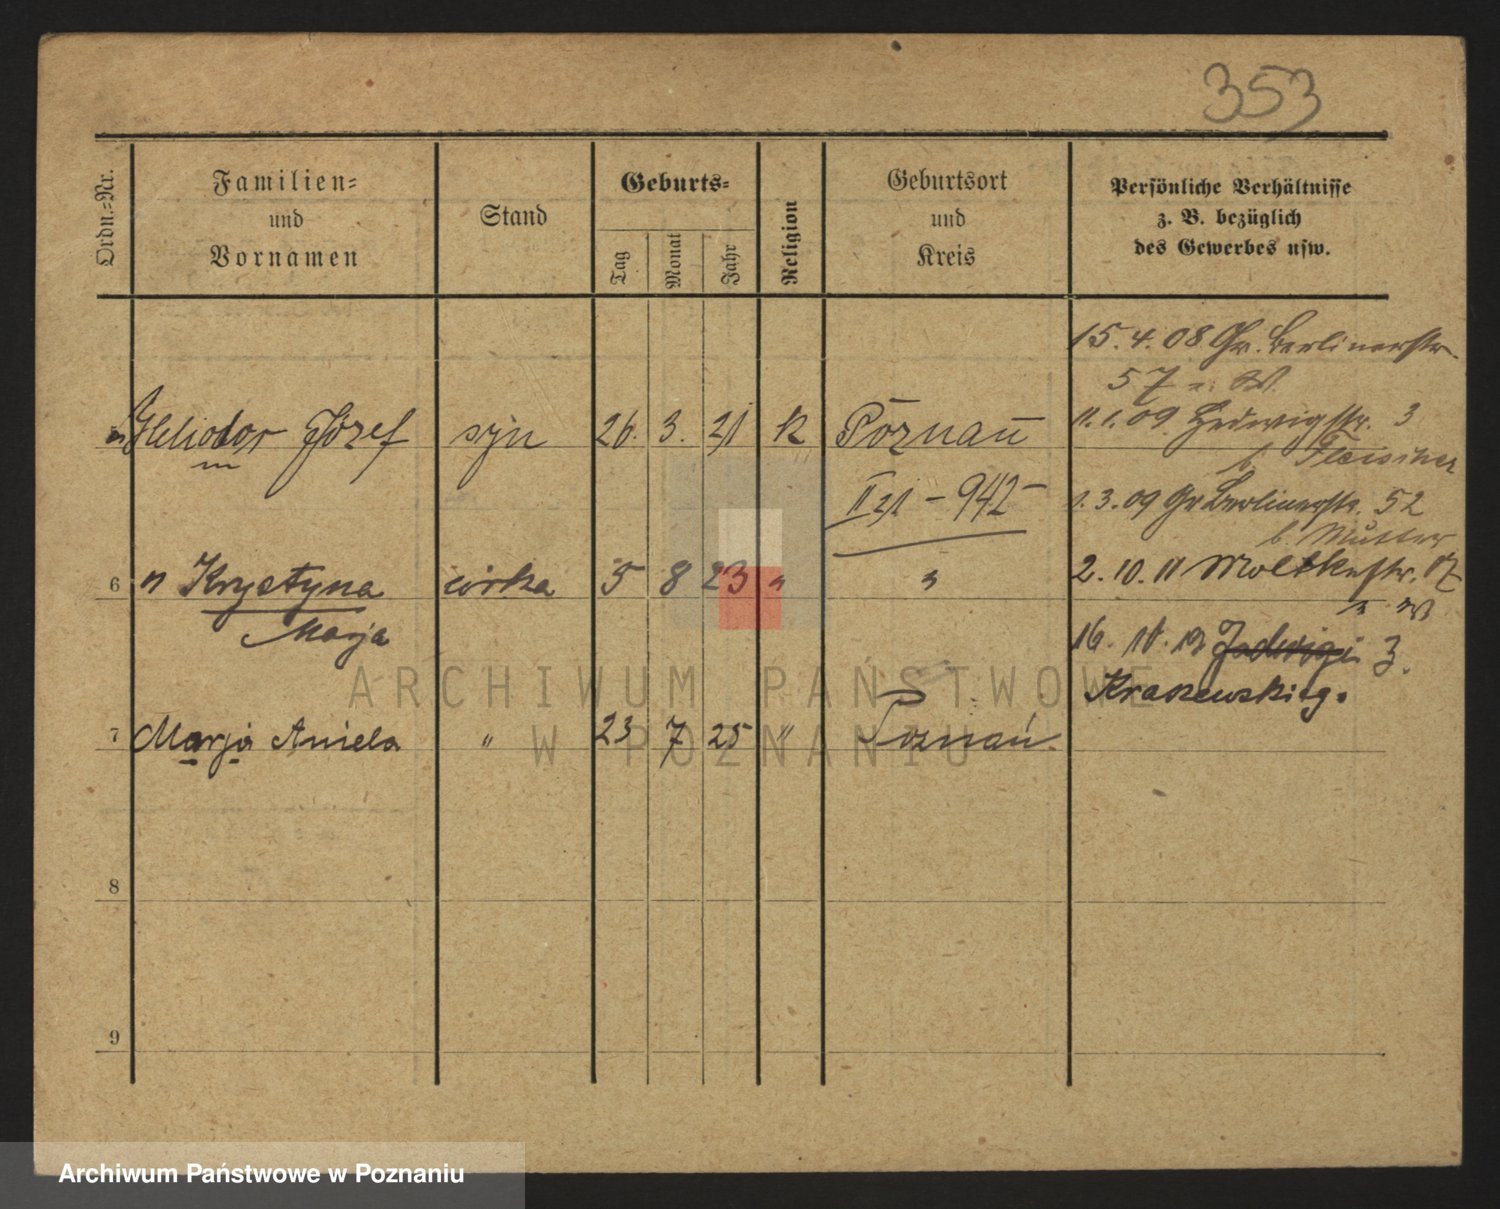 353
Ordn.-Nr.
Familien-
und
Vornamen
Stand
Geburts-
Tag
Monat
Jahr
Religion
Geburtsort
und
Kreis
Persönliche Verhältnisse
z. B. bezüglich
des Gewerbes usw.
15.4.08 Gr. Berlinerstr.
57
5 Heliodor Józef syn 26. 3. 21 k Poznań
11.1.09 Hedwigstr. 3
b.
II 21 - 942 -
1.3.09 Gr Berlinerstr. 52
b. Mutter
6 " Krystyna córka 5 8 23 " "
Marja
2.10.11 Moltkestr.
16. Jadwigi 3.
Kraszewskieg.
7 Marja Aniela " 23 7 25 " Poznań
8
9
ARCHIWUM PAŃSTWOWE
W POZNANIU
Archiwum Państwowe w Poznaniu